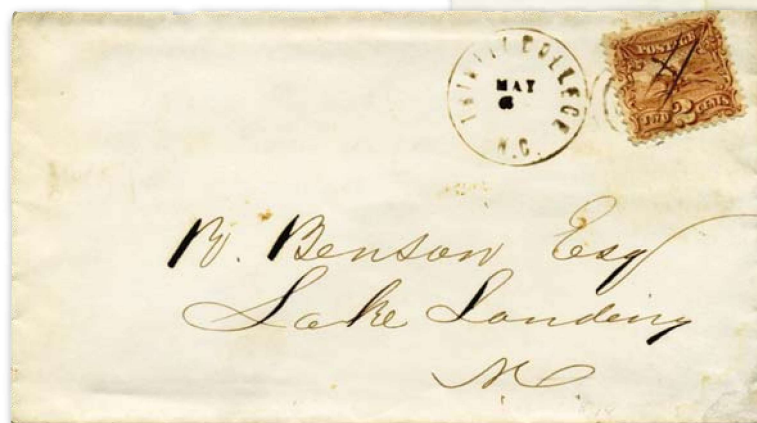 TRINITY COLLEGE
MAY
6
N.C.
POSTAGE
TWO 2 CENTS
B. Benson Esq
Lake Landing
N C